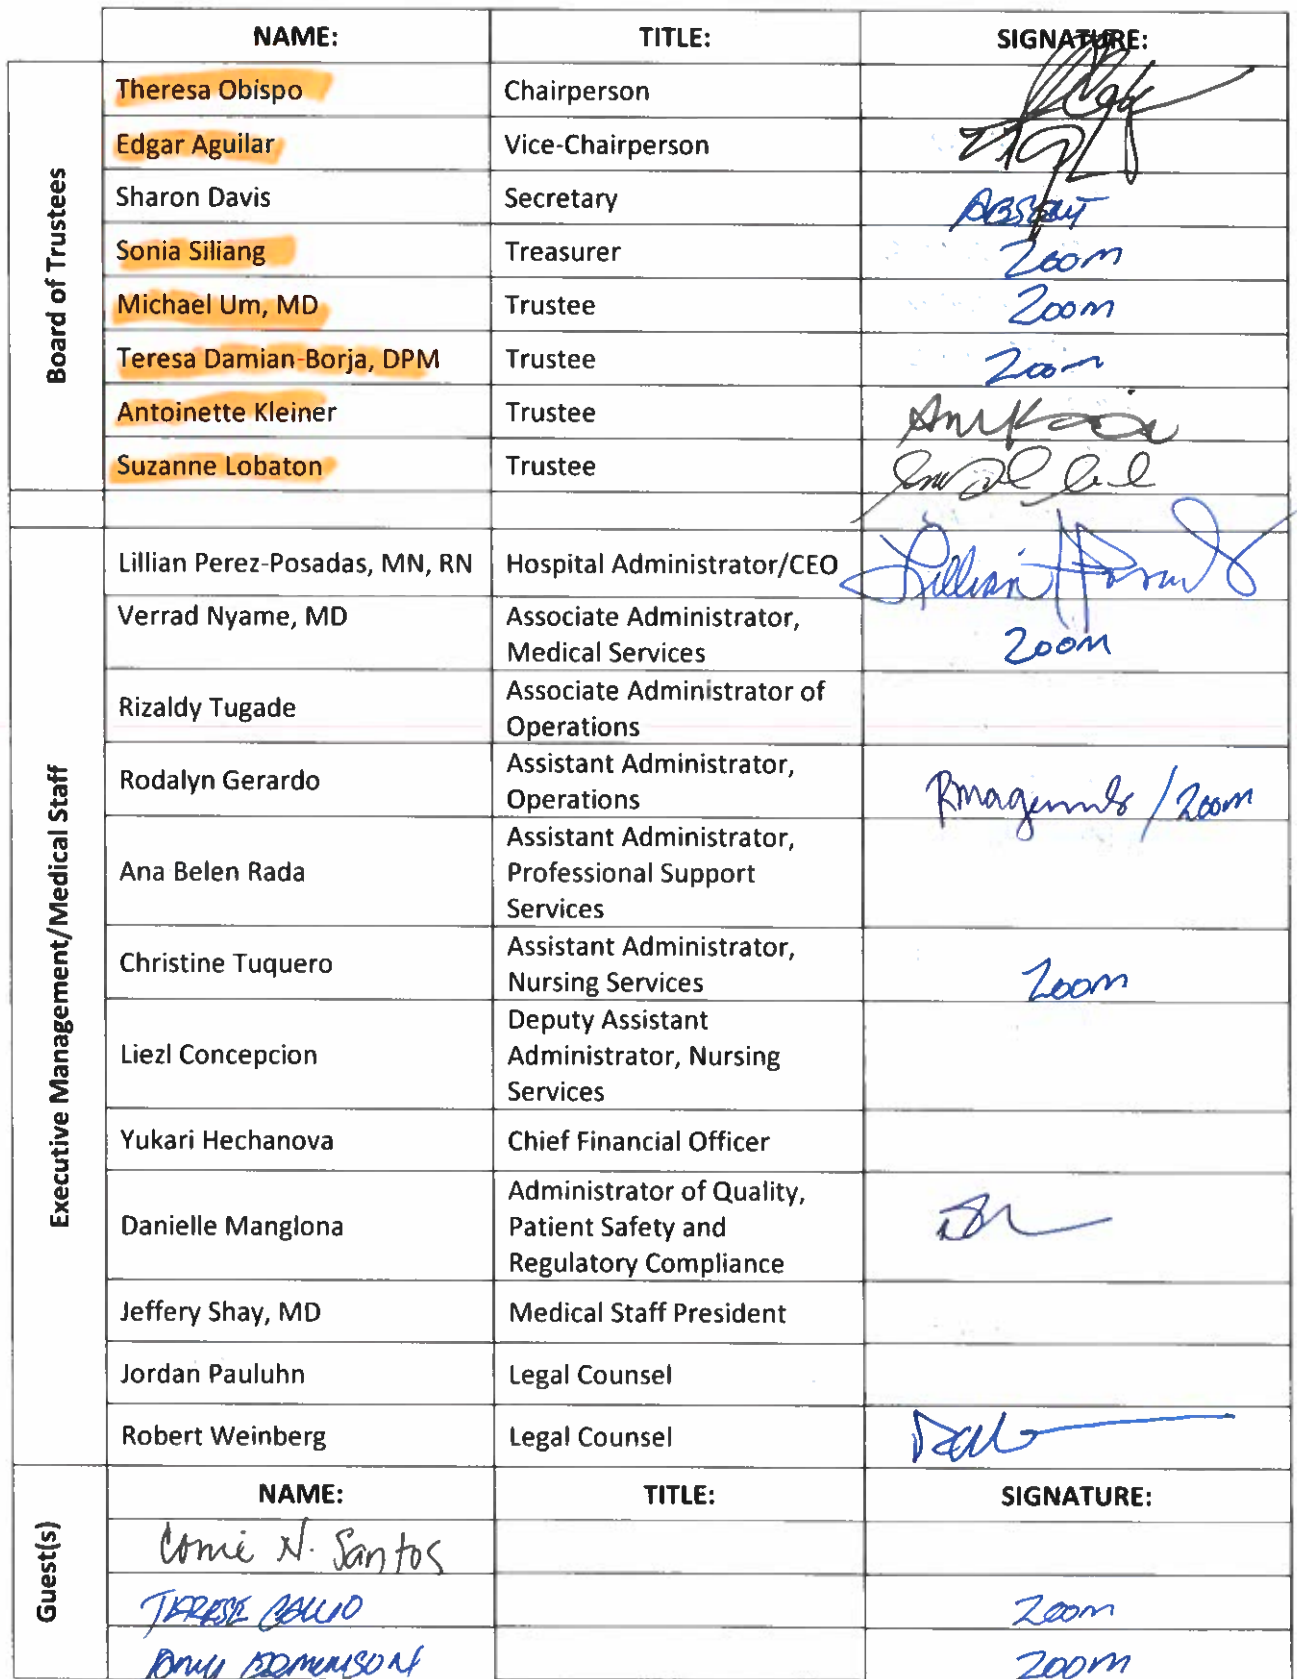 NAME: TITLE: SIGNATURE:
Board of Trustees
Theresa Obispo Chairperson
Edgar Aguilar Vice-Chairperson
Sharon Davis Secretary ABSENT
Sonia Siliang Treasurer Zoom
Michael Um, MD Trustee Zoom
Teresa Damian-Borja, DPM Trustee Zoom
Antoinette Kleiner Trustee
Suzanne Lobaton Trustee
Executive Management/Medical Staff
Lillian Perez-Posadas, MN, RN Hospital Administrator/CEO Lillian
Verrad Nyame, MD Associate Administrator,
Medical Services Zoom
Rizaldy Tugade Associate Administrator of
Operations
Rodalyn Gerardo Assistant Administrator,
Operations / Zoom
Ana Belen Rada Assistant Administrator,
Professional Support
Services
Christine Tuquero Assistant Administrator,
Nursing Services Zoom
Liezl Concepcion Deputy Assistant
Administrator, Nursing
Services
Yukari Hechanova Chief Financial Officer
Danielle Manglona Administrator of Quality,
Patient Safety and
Regulatory Compliance
Jeffery Shay, MD Medical Staff President
Jordan Pauluhn Legal Counsel
Robert Weinberg Legal Counsel
NAME: TITLE: SIGNATURE:
Guest(s)
N. Santos
Zoom
Zoom